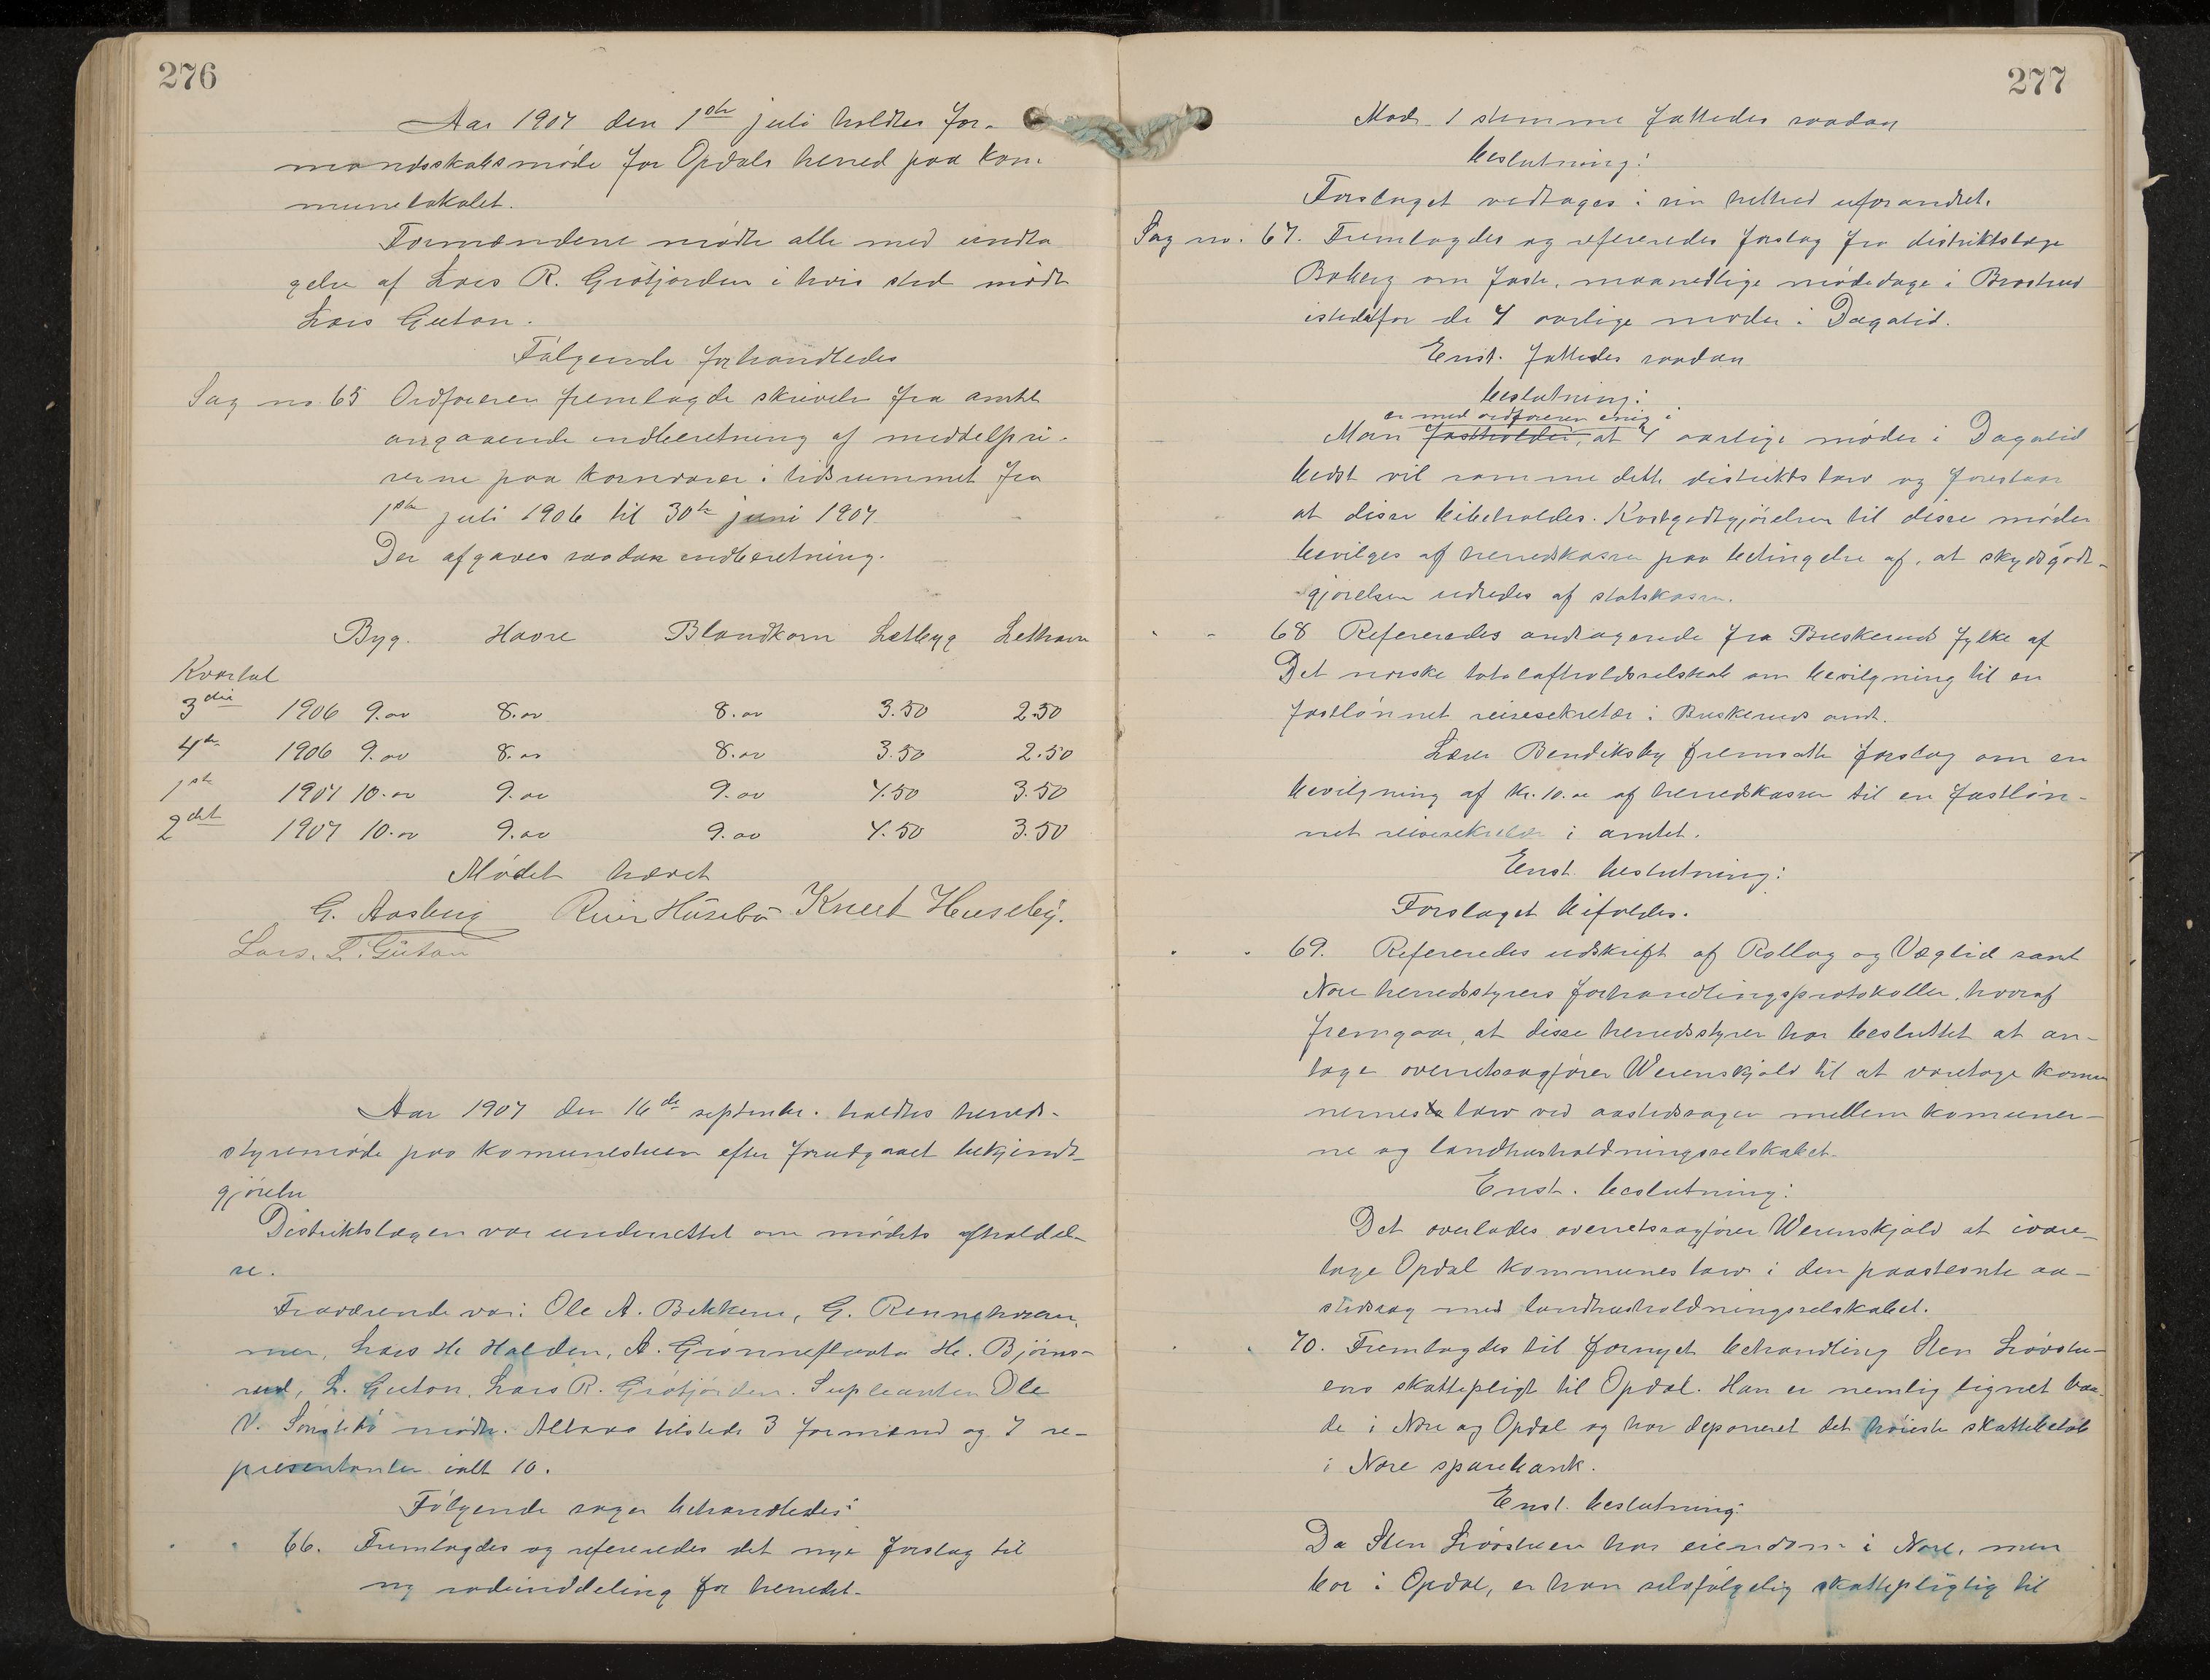 276
Aar 1907 den 1ste juli holdtes for-
mandsskabsmöde for Opdals herred paa kom-
munelokalet.
Formændene mödte alle med undta
gelse af Lars R. Grötjorden i hvis sted mödte
Lars Guton.
Fölgende forhandledes
Sag no 65 Ordföreren fremlagde skrivelse fra amtet
angaaende indberetning af middelpri-
serne paa kornvarer i tidsrummet fra
1ste juli 1906 til 30te juni 1907.
Der afgaves saadan indberetning.
Byg. Havre Blandkorn Letbyg Lethavre
Kvartal
3die 1906 9.00 8.00 8.00 3.50 2.50
4de 1906 9.00 8.00 8.00 3.50 2.50
1ste 1907 10.00 9.00 9.00 4.50 3.50
2det 1907 10.00 9.00 9.00 4.50 3.50
Mödet hævet
G. Aasberg Reier Husebö Knut Huseby.
Lars. L. Guton
Aar 1907 den 16de septembr. holdtes herreds-
styremöde paa komunestuen efter forudgaaet bekjendt-
gjörelse
Distriktslægen var underrettet om mödets afholdel-
se.
Fraværende var: Ole A. Bekkene, G.
Lars H. Halden, A. Grönneflaata H. Björns-
rud, L. Guton, Lars R. Grötjorden. Supleanten Ole
V. mödte. Altsaa tilstede 3 formænd og 7 re-
presentanter ialt 10.
Fölgende sager behandledes:
" " 66. Fremlagdes og refereredes det nye forslag til
ny rodeinddeling for herredet.
277
Mod 1 stemme fattedes saadan
beslutning:
Forslaget vedtages i sin helhed uforandret.
Sag no. 67. Fremlagdes og refereredes forslag fra distriktslæge
Boberg om faste, maanedlige mödedage i Brostrud
istedetfor de 4 aarlige möder i Dagalid.
Enst. fattedes saadan
beslutning:
er med ordföreren enig i
Man fastholder, at 4 aarlige möder i Dagalid
bedst vil samme dette distrikts tarv og foreslaar
at disse bibeholdes. Kostgodtgjörelsen til disse möder
bevilges af herredskassen paa betingelse af, at skydsgodt-
gjörelsen udredes af statskassen.
" " 68 Refereredes andragende fra Buskeruds fylke af
Det norske totalafholdsselskab om bevilgning til en
fastlönnet reisesekretær i Buskeruds amt.
Lærer Bendiksby fremsatte forslag om en
bevilgning af kr. 10.00 af herredskassen til en fastlön-
net reisesekretær i amtet.
Enst. beslutning:
Forslaget bifaldes.
" " 69. Refereredes udskrift af Rollag og Væglid samt
Nore herredsstyrers forhandlingsprotokoller, hvoraf
fremgaar, at disse herredsstyrer har besluttet at an-
tage overretssagförer Werenskjold til at varetage komu
nernes tarv ved aastedssagen mellem komuner-
ne og landhusholdningsselskabet.
Enst. beslutning:
Det overlades overretssagförer Werenskjold at ivare-
tage Opdal kommunes tarv i den paastevnte aa-
stedssag med landhusholdningsselskabet.
" " 70. Fremlagdes til fornyet behandling Sten Lövstu-
ens skattepligt til Opdal. Han er nemlig lignet baa-
de i Nore og Opdal og har deponeret det höieste skattebelöb
i Nore sparebank.
Enst. beslutning:
Da Sten Lövstuen har eiendom i Nore, men
bor i Opdal, er han selvfölgelig skattepligtig til